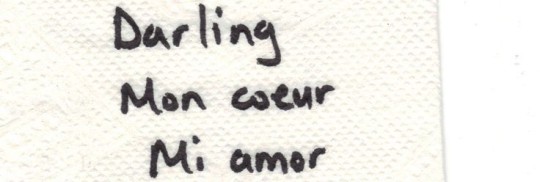 Darling
Mon coeur
Mi amor